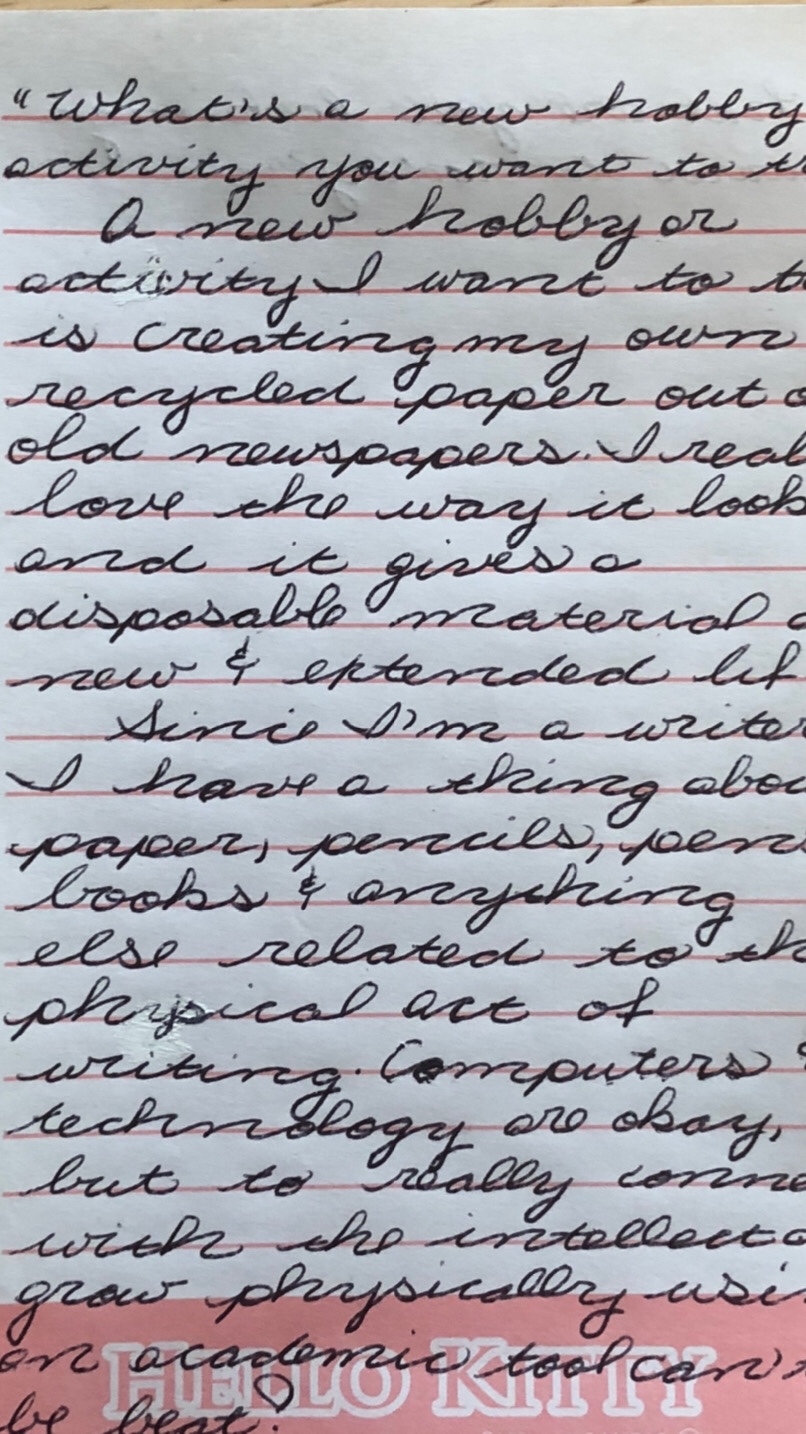 "What's a new hobby
activity you want to
A new hobby or
activity I want to
is creating my own
recycled paper out
old newspapers. I
love the way it look
and it gives a
disposable material
new & extended
Since I'm a writer
I have a thing
paper, pencils, pen
books & anything
else related to
physical act of
writing. Computers
technology are okay,
but to really
with the intellect
grow physically
an academic tool can't
be beat!
HELLO KITTY